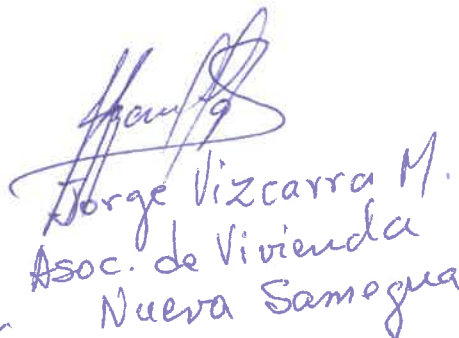 Jorge Vizcarra M.
Asoc. de Vivienda
Nueva Samegua